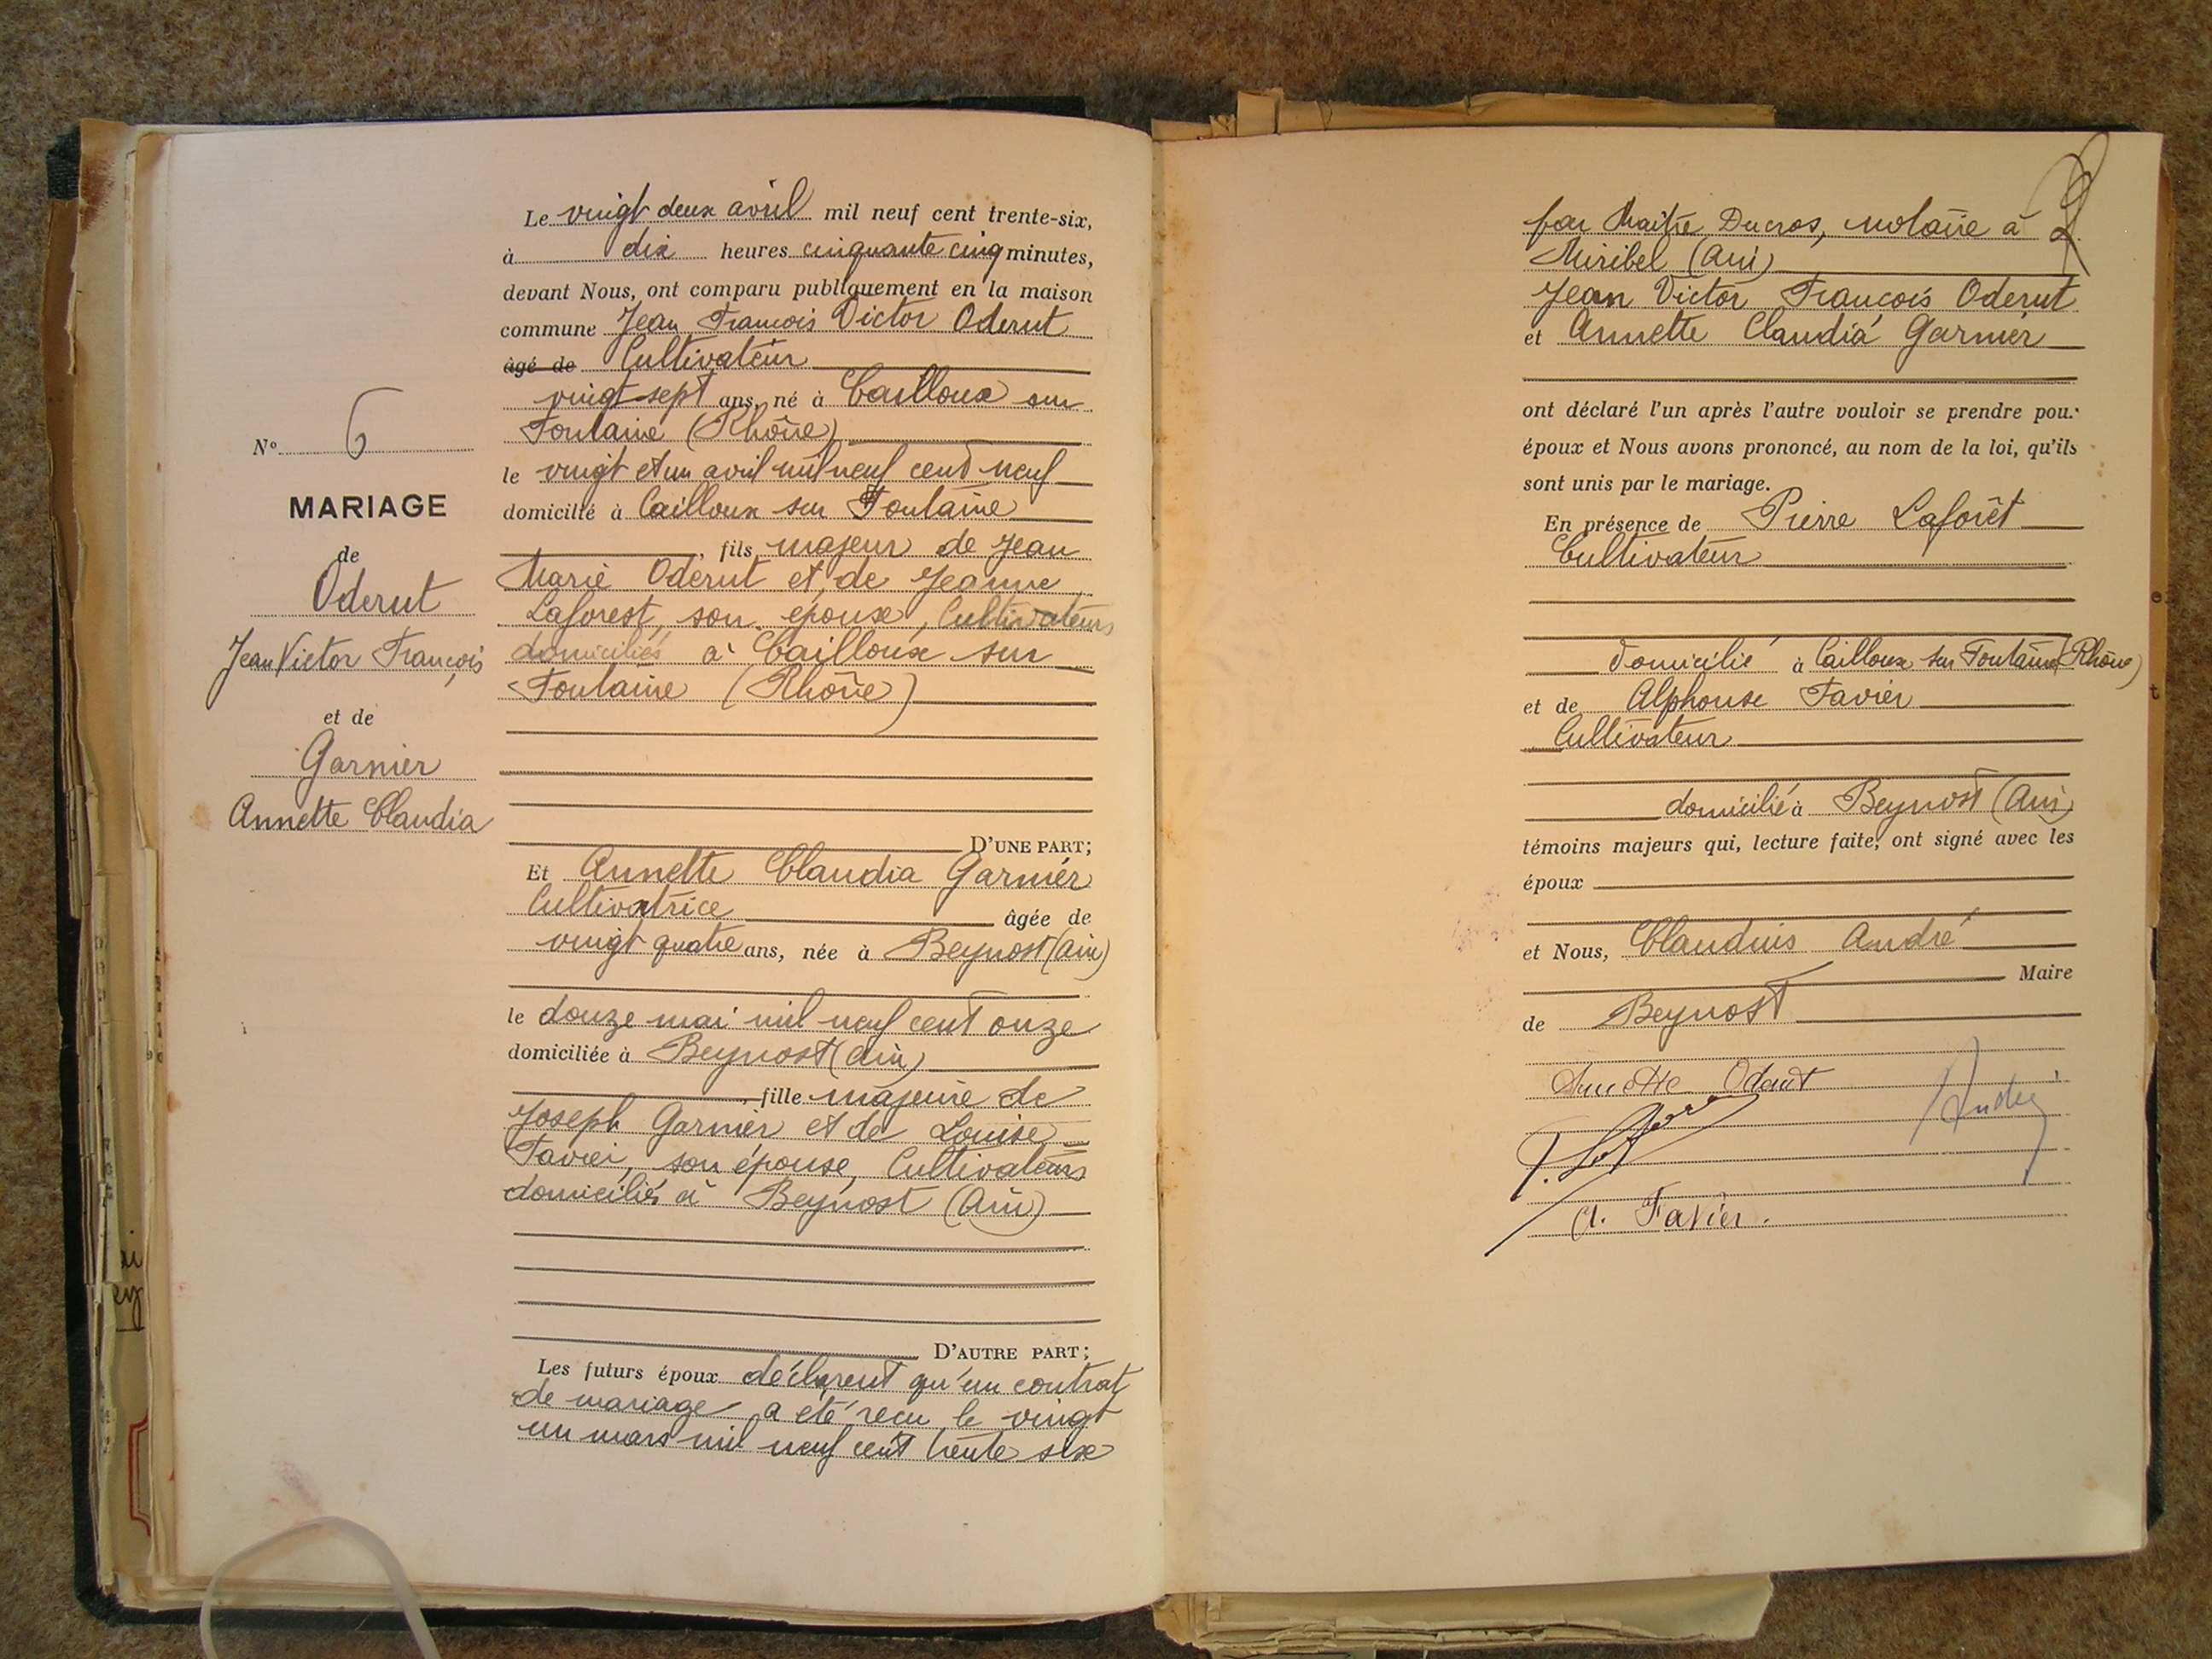 Le vingt deux avril mil neuf cent trente-six,
à dix heures cinquante cinq minutes,
devant Nous, ont comparu publiquement en la maison
commune Jean François Victor Oderut
âgé de Cultivateur
vingt-sept ans, né à Cailloux sur
Fontaine (Rhône)
le vingt et un avril mil neuf cent neuf
domicilié à Cailloux sur Fontaine
, fils majeur de Jean
Marie Oderut et de Jeanne
Laforest, son épouse, Cultivateurs
domiciliés à Cailloux sur
Fontaine (Rhône)
D'UNE PART;
Et Annette Claudia Garnier
Cultivatrice âgée de
vingt quatre ans, née à Beynost (Ain)
le douze mai mil neuf cent onze
domiciliée à Beynost (Ain)
, fille majeure de
Joseph Garnier et de Louise
Favier, son épouse, Cultivateurs
domiciliés à Beynost (Ain)
D'AUTRE PART;
Les futurs époux déclarent qu'un contrat
de mariage a été reçu le vingt
un mars mil neuf cent trente six
N° 6
MARIAGE
de
Oderut
Jean Victor François
et de
Garnier
Annette Claudia
par Maître Ducros, notaire à
Miribel (Ain)
Jean Victor François Oderut
et Annette Claudia Garnier
ont déclaré l'un après l'autre vouloir se prendre pour
époux et Nous avons prononcé, au nom de la loi, qu'ils
sont unis par le mariage.
En présence de Pierre Laforêt
Cultivateur
domicilié à Cailloux sur Fontaine (Rhône)
et de Alphonse Favier
Cultivateur
domicilié à Beynost (Ain)
témoins majeurs qui, lecture faite, ont signé avec les
époux
et Nous, Claudius André
Maire
de Beynost
Annette Oderut
André
A. Favier.